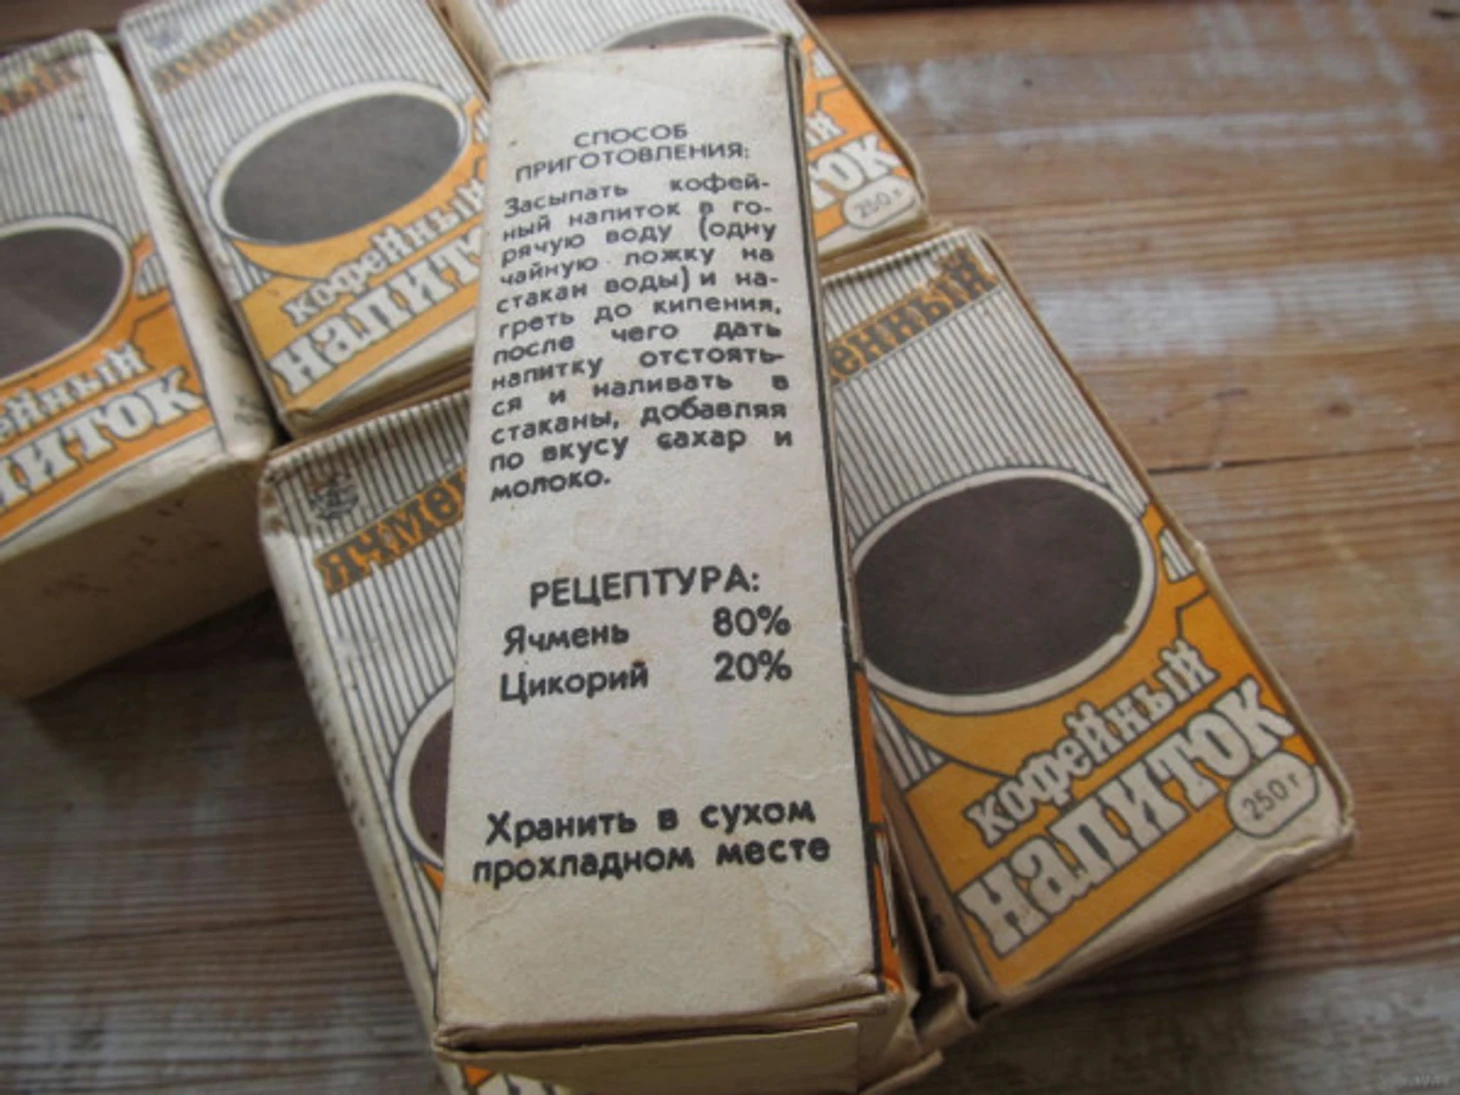 СПОСОБ
ПРИГОТОВЛЕНИЯ:
Засыпать кофей-
ный напиток в го-
рячую воду (одну
чайную ложку на
стакан воды) и на-
греть до кипения,
после чего дать
напитку отстоять-
ся и наливать в
стаканы, добавляя
по вкусу сахар и
молоко.
РЕЦЕПТУРА:
Ячмень 80%
Цикорий 20%
Хранить в сухом
прохладном месте
кофейный
напит
ейный
питок
ток
250 г
ячмен
енный
кофейный
напиток
250 г